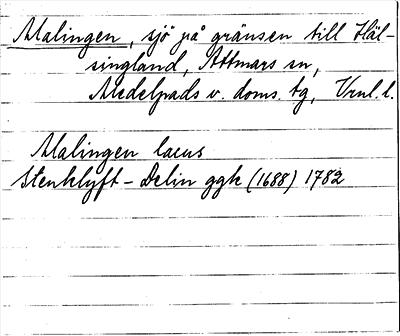 Malingen, sjö på gränsen till Häl-
singland, Attmars sn,
Medelpads v. doms. tg, Vrnl. l.
Malingen lacus
Stenklyft - Delin ggk (1688) 1782